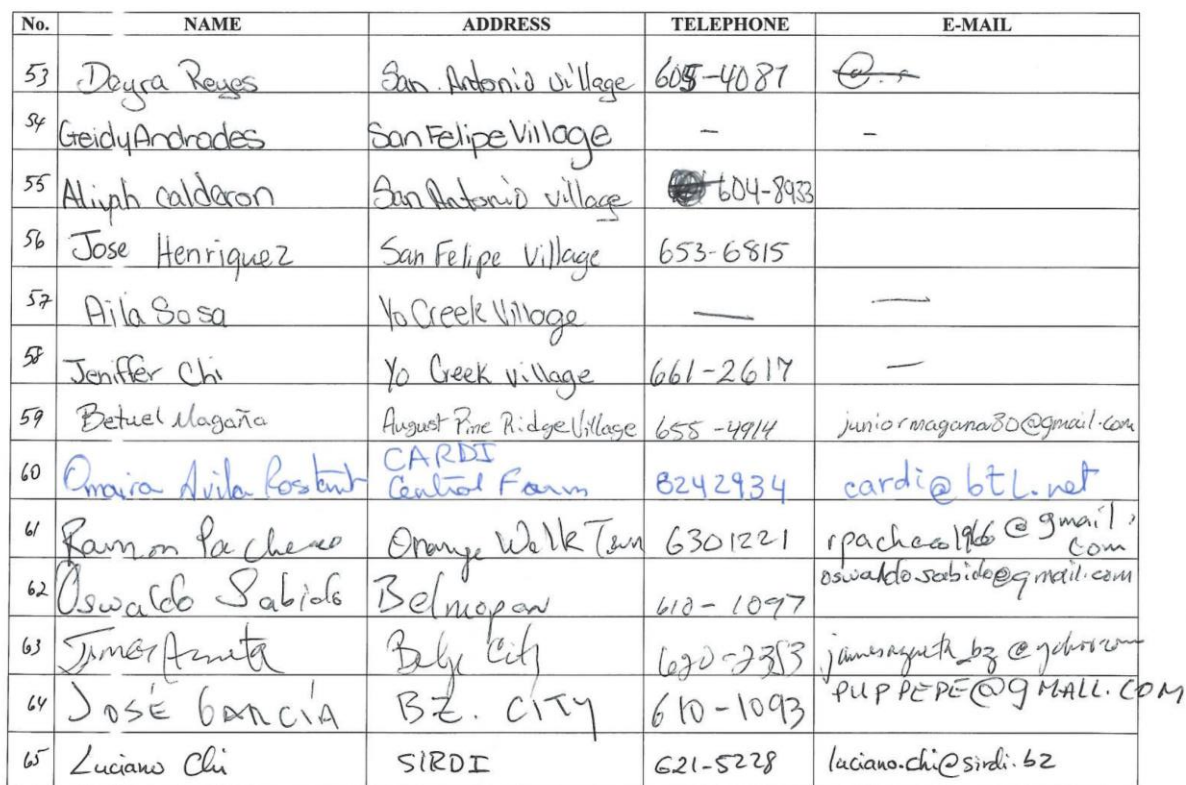 No. NAME ADDRESS TELEPHONE E-MAIL
53 Dayra Reyes San Antonio village 605-4087
54 Geidy Andrades San Felipe Village - -
55 Aliyah calderon San Antonio village 604-8933
56 Jose Henriquez San Felipe Village 653-6815
57 Aila Sosa Yo Creek Village — —
58 Jeniffer Chi Yo Creek village 661-2617 —
59 Betuel Magaña August Pine Ridge Village 655-4914 juniormagana80@gmail.com
60 Omaira Avila Rostant CARDI Central Farm 8242934 cardi@btl.net
61 Ramon Pacheco Orange Walk Town 6301221 rpacheco1966@gmail.com
62 Oswaldo Sabido Belmopan 610-1097 oswaldo.sabido@gmail.com
63 James Belize City 620-2353
64 JOSÉ GARCÍA BZ. CITY 610-1093 PUPPEPE@GMAIL.COM
65 Luciano Chi SIRDI 621-5228 luciano.chi@sirdi.bz